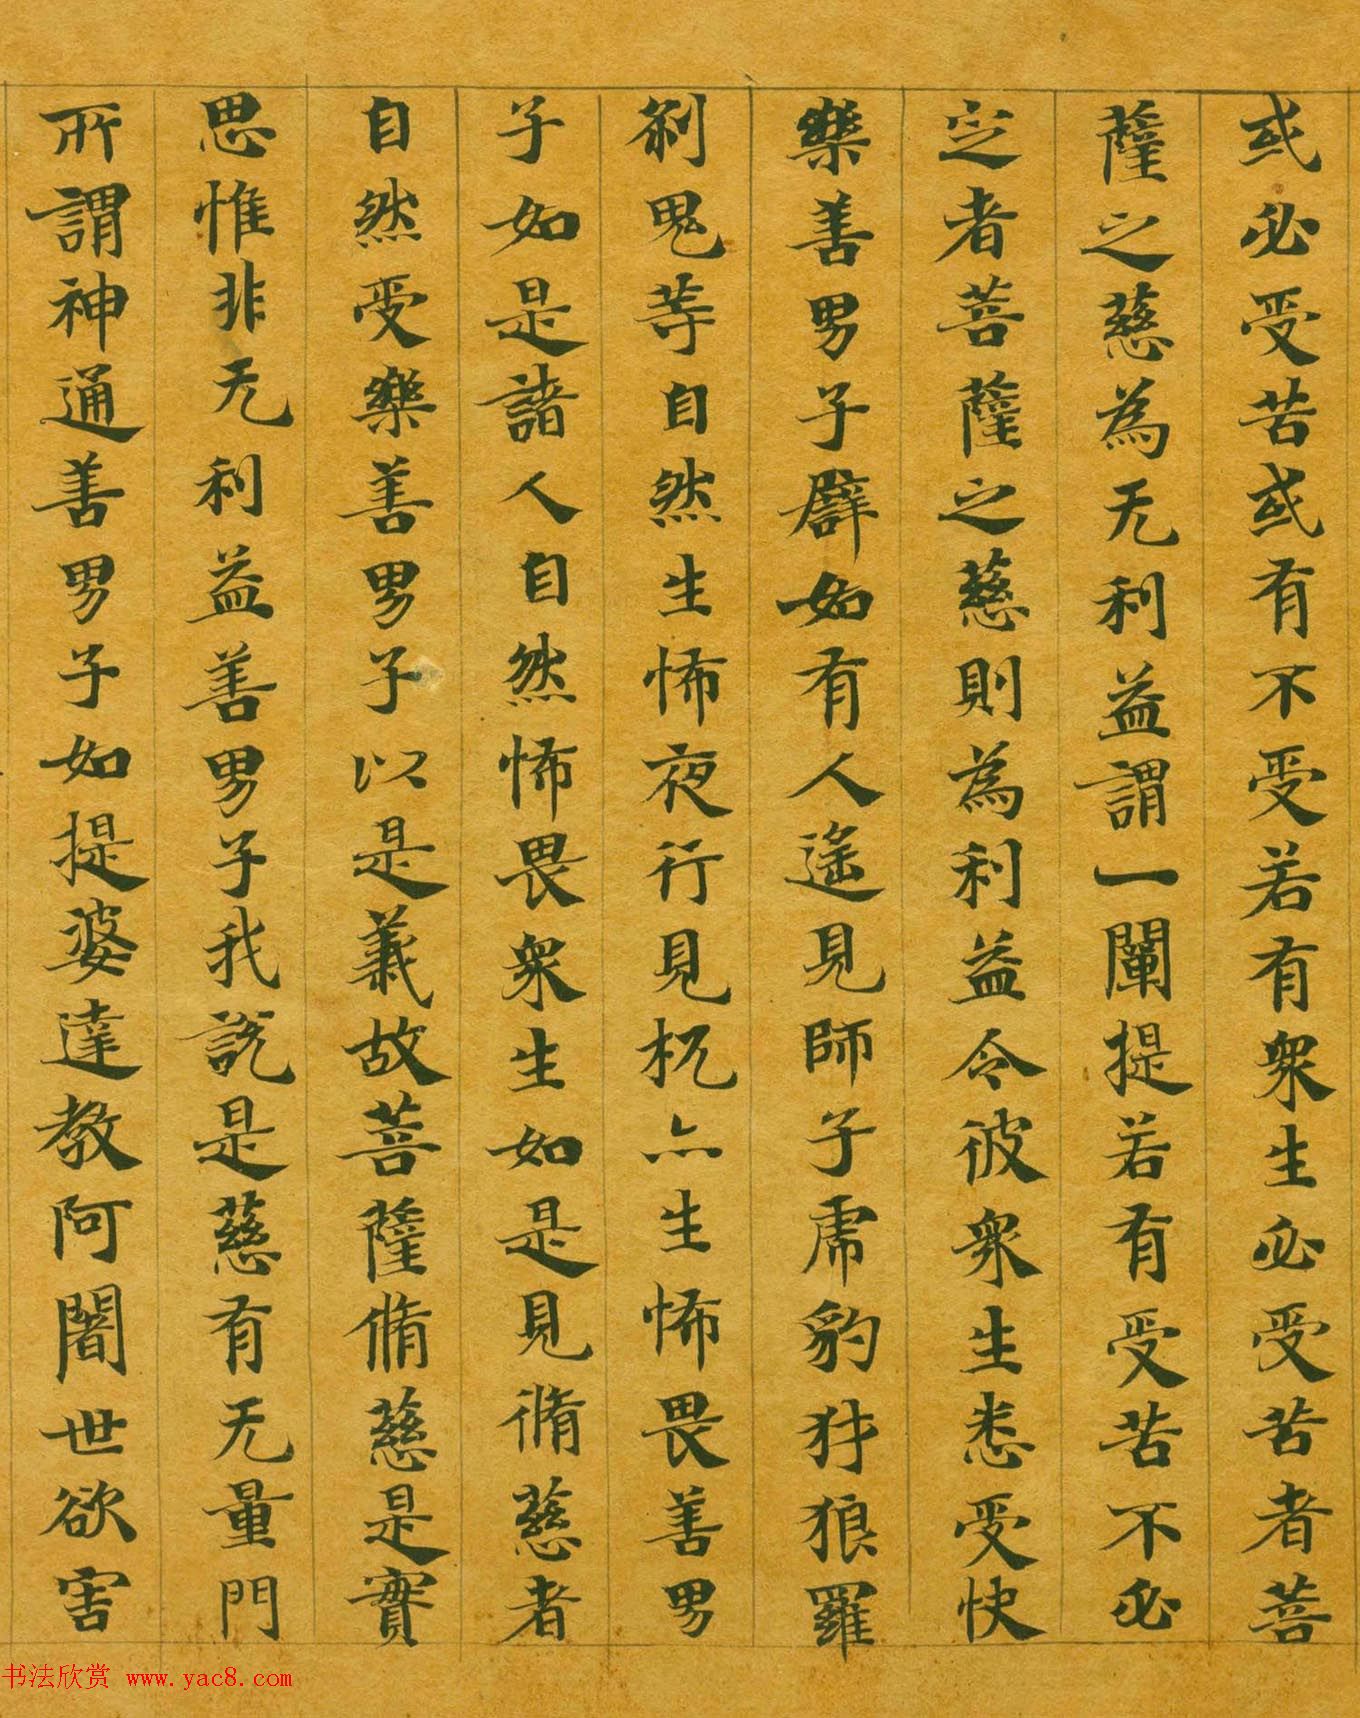 或必受苦或有不受若有衆生必受苦者菩
薩之慈為无利益謂一闡提若有受苦不必
定者菩薩之慈則為利益令彼衆生悉受快
樂善男子譬如有人遥見師子虎豹犲狼羅
刹鬼等自然生怖夜行見杌亦生怖畏善男
子如是諸人自然怖畏衆生如是見脩慈者
自然受樂善男子以是義故菩薩脩慈是實
思惟非无利益善男子我說是慈有无量門
所謂神通善男子如提婆達教阿闍世欲害
书法欣赏 www.yac8.com